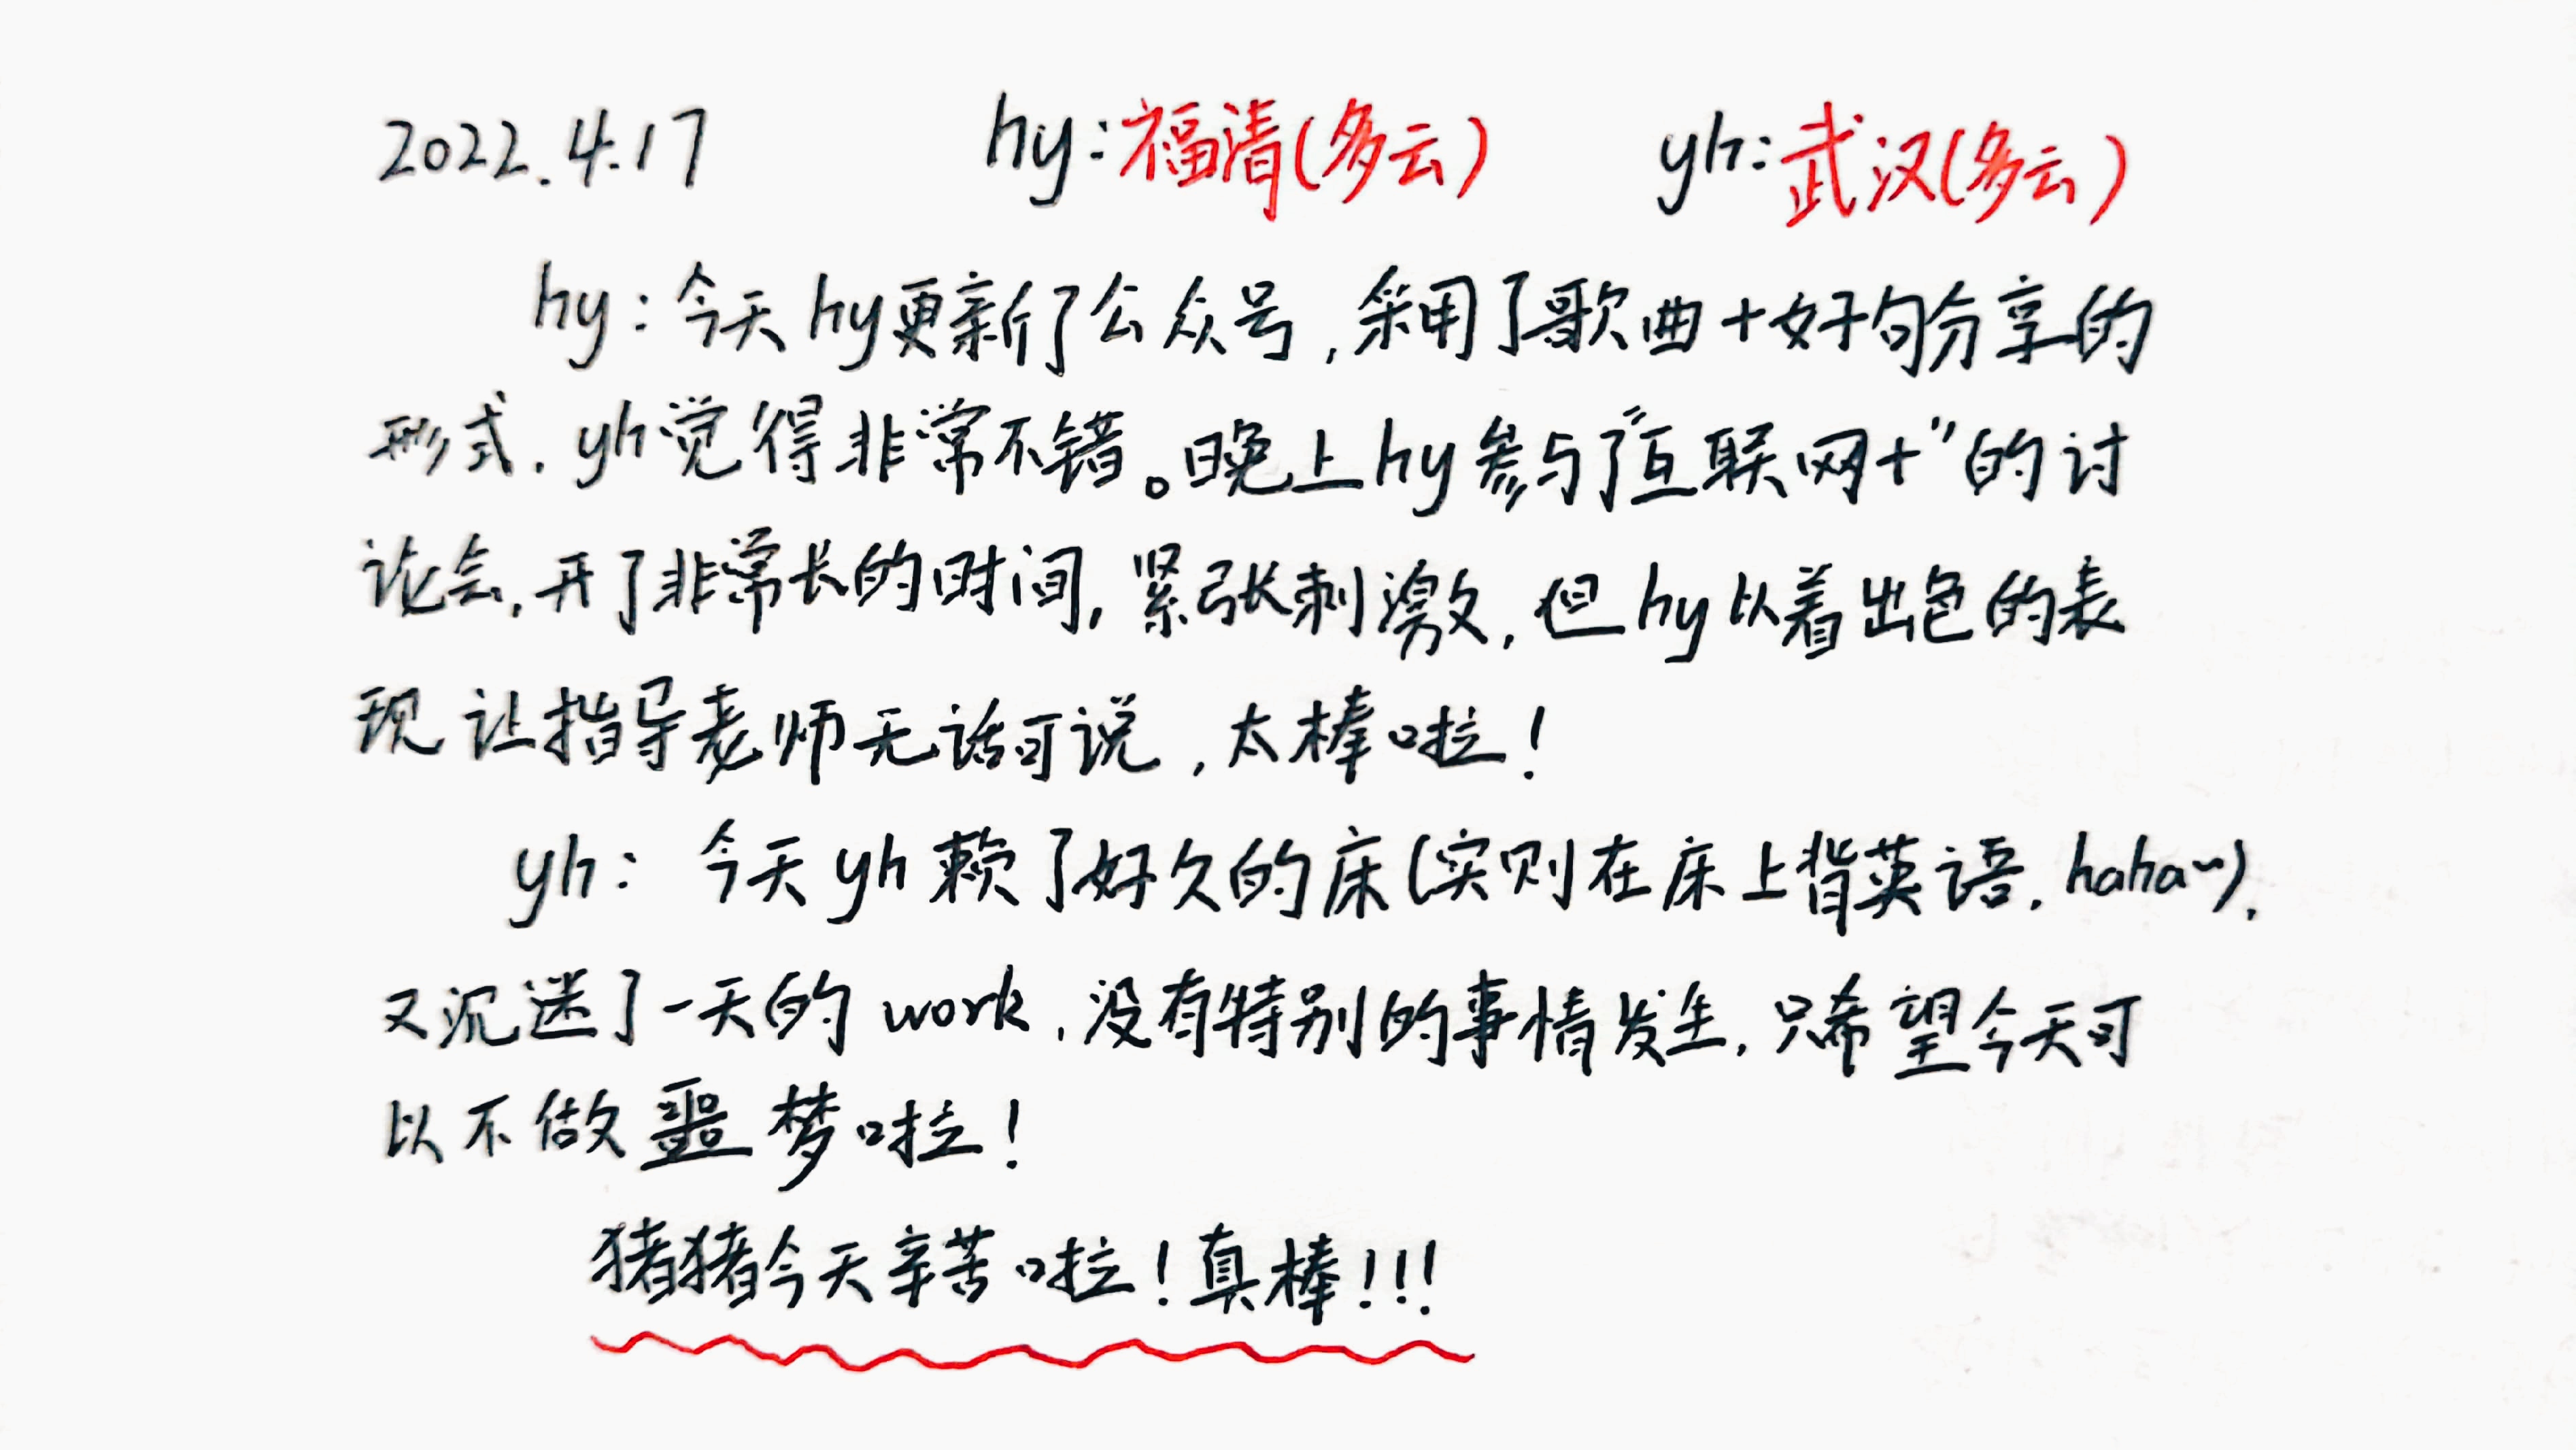 2022.4.17 hy:福清(多云) yh:武汉(多云)
hy:今天hy更新了公众号,采用了歌曲+好句分享的
形式,yh觉得非常不错。晚上hy参与了"互联网+"的讨
论会,开了非常长的时间,紧张刺激,但hy以着出色的表
现让指导老师无话可说,太棒啦!
yh:今天yh赖了好久的床(实则在床上背英语,haha~),
又沉迷了一天的work,没有特别的事情发生,只希望今天可
以不做噩梦啦!
猪猪今天辛苦啦!真棒!!!